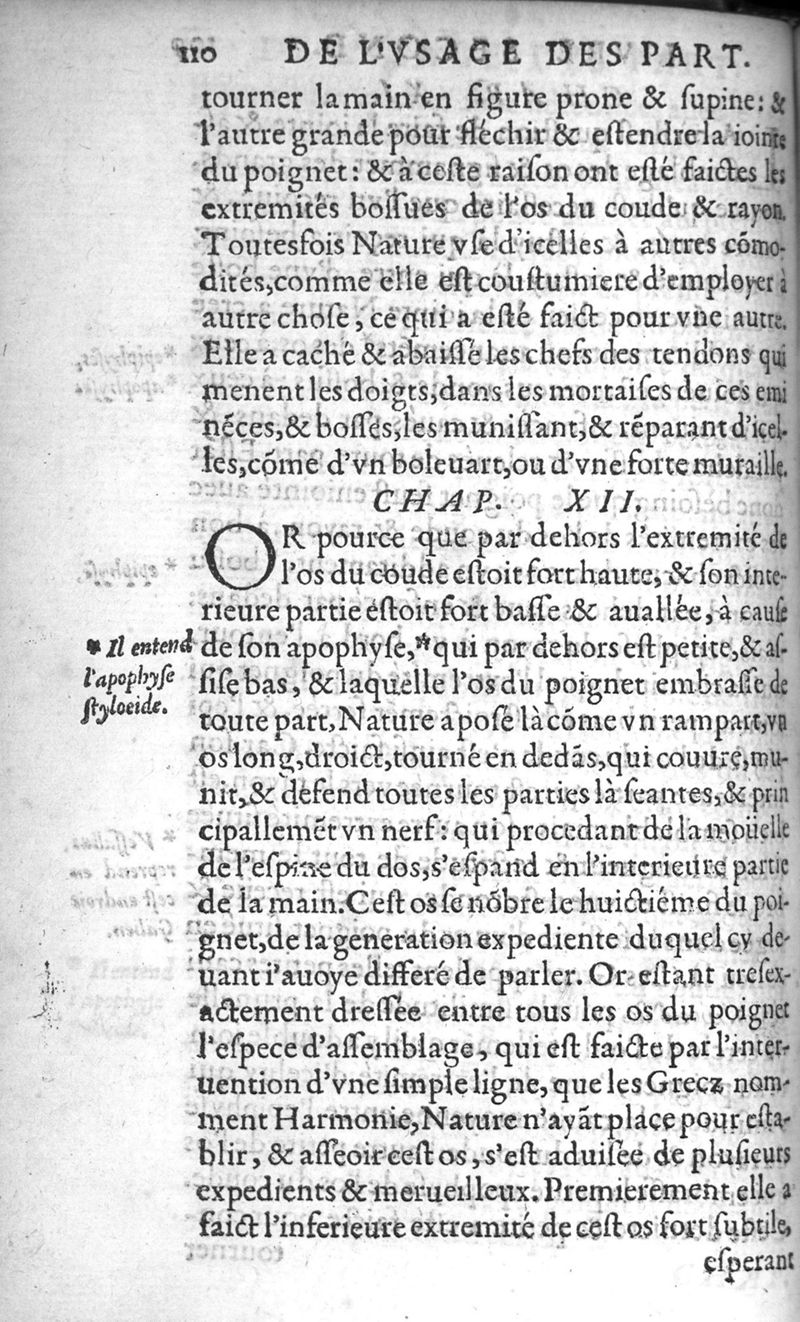 110 DE L'VSAGE DES PART.
tourner la main en figure prone & ſupine: &
l'autre grande pour fléchir & eſtendre la iointe
du poignet: & à ceſte raiſon ont eſté faictes les
extremités boſſues de l'os du coude & rayon.
Toutesfois Nature vſe d'icelles à autres cōmo-
dités, comme elle eſt couſtumiere d'employer à
autre choſe, ce qui a eſté faict pour vne autre.
Elle a caché & abaiſſé les chefs des tendons qui
menent les doigts, dans les mortaiſes de ces emi
nēces, & boſſes, les muniſſant, & réparant d'icel-
les, cōme d'vn boleuart, ou d'vne forte muraille.
CHAP. XII.
OR pource que par dehors l'extremité de
l'os du coude eſtoit fort haute, & ſon inte-
rieure partie eſtoit fort baſſe & auallée, à cauſe
de ſon apophyſe,* qui par dehors eſt petite, & aſ-
* Il entend
l'apophyſe
ſtyloeide.
ſiſe bas, & laquelle l'os du poignet embraſſe de
toute part, Nature a poſé là cōme vn rampart, vn
os long, droict, tourné en dedās, qui couure, mu-
nit, & défend toutes les parties là ſeantes, & prin
cipallemēt vn nerf: qui procedant de la moüelle
de l'eſpine du dos, s'eſpand en l'interieure partie
de la main. Ceſt os ſe nōbre le huictiéme du poi-
gnet, de la generation expediente duquel cy de-
uant i'auoye differé de parler. Or eſtant treſex-
actement dreſſée entre tous les os du poignet
l'eſpece d'aſſemblage, qui eſt faicte par l'inter-
uention d'vne ſimple ligne, que les Grecz nom-
ment Harmonie, Nature n'ayāt place pour eſta-
blir, & aſſeoir ceſt os, s'eſt aduiſée de pluſieurs
expedients & merueilleux. Premierement elle a
faict l'inferieure extremité de ceſt os fort ſubtile,
eſperant